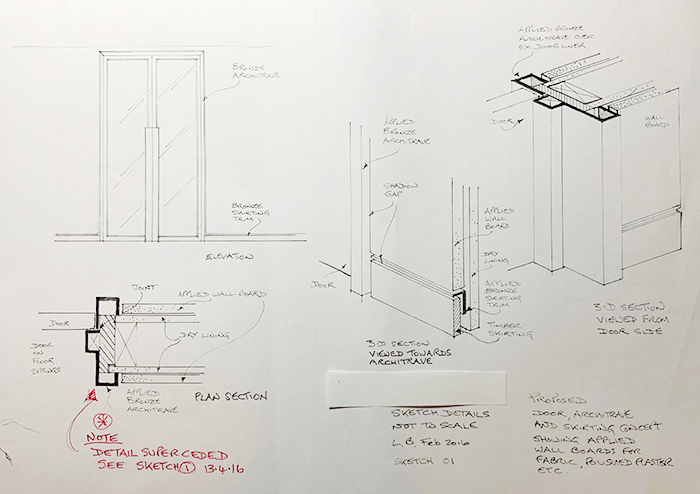 BRONZE
ARCHITRAVE
BRONZE
SKIRTING
TRIM
ELEVATION
JOINT
APPLIED WALL BOARD
DOOR
DRY LINING
DOOR
ON
FLOOR
SPRINGS
APPLIED
BRONZE
ARCHITRAVE
PLAN SECTION
NOTE
DETAIL SUPERCEDED
SEE SKETCH 1 13.4.16
APPLIED
BRONZE
ARCHITRAVE
SHADOW
GAP
DOOR
APPLIED
WALL
BOARD
DRY
LINING
APPLIED
BRONZE
SKIRTING
TRIM
TIMBER
SKIRTING
3-D SECTION
VIEWED TOWARDS
ARCHITRAVE
SKETCH DETAILS
NOT TO SCALE
L.B. Feb 2016
SKETCH 01
APPLIED BRONZE
ARCHITRAVE OVER
EX. DOOR LINER
DOOR
WALL
BOARD
3-D SECTION
VIEWED FROM
DOOR SIDE
PROPOSED
DOOR, ARCHITRAVE
AND SKIRTING CONCEPT
SHOWING APPLIED
WALL BOARDS FOR
FABRIC, POLISHED PLASTER
ETC.